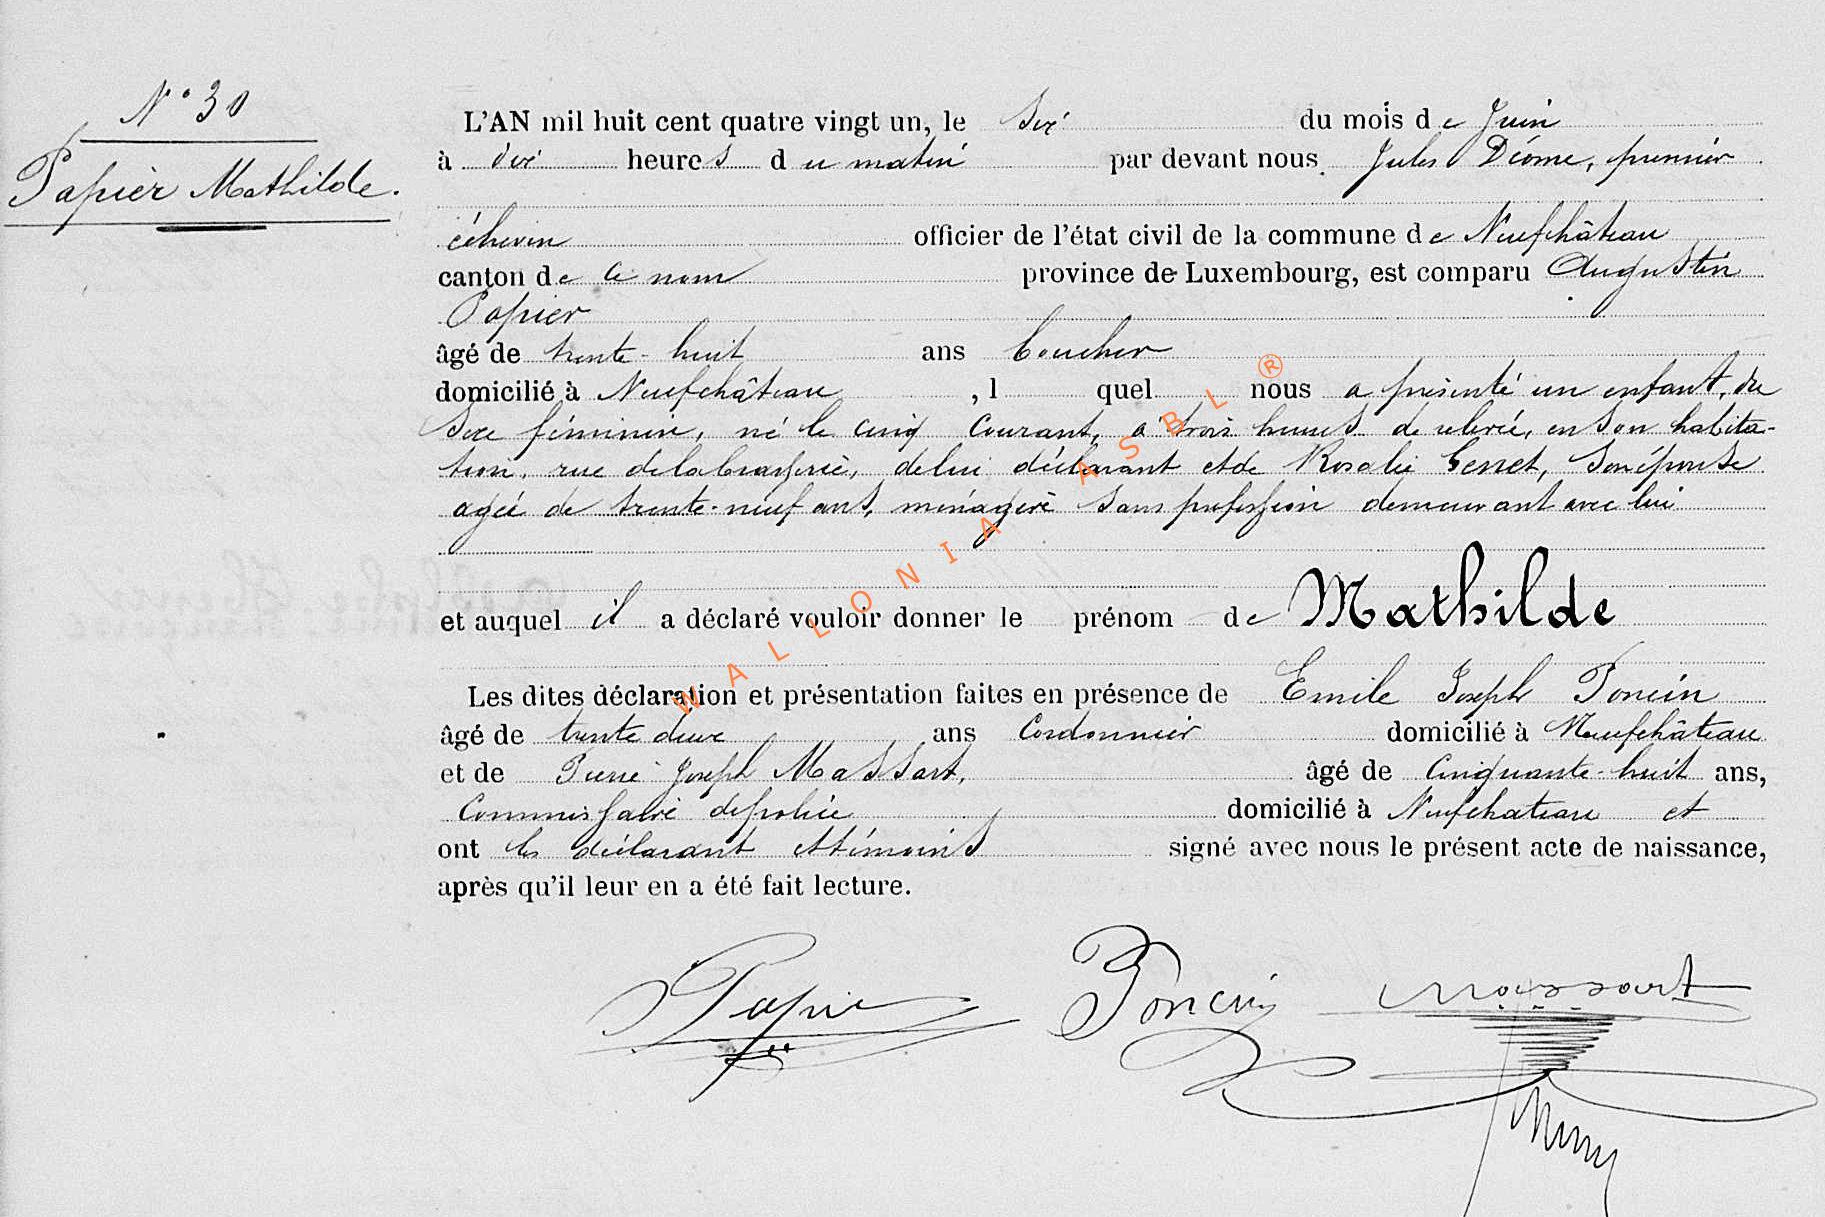 N° 30
Papier Mathilde.
L'AN mil huit cent quatre vingt un, le six du mois de Juin
à dix heures du matin par devant nous Jules Déome, premier
échevin officier de l'état civil de la commune de Neufchâteau
canton de ce nom province de Luxembourg, est comparu Augustin
Papier
âgé de trente-huit ans boucher
domicilié à Neufchâteau, l quel nous a présenté un enfant, du
sexe féminin, né le cinq courant, à trois heures de relevée, en son habita-
tion, rue de la brasserie, de lui déclarant et de Rosalie Genet, son épouse
agée de trente-neuf ans, ménagère sans profession demeurant avec lui
et auquel il a déclaré vouloir donner le prénom de Mathilde
Les dites déclaration et présentation faites en présence de Emile Joseph Poncin
âgé de trente deux ans Cordonnier domicilié à Neufchâteau
et de Pierre Joseph Massart, âgé de Cinquante-huit ans,
Commissaire de police domicilié à Neufchateau et
ont les déclarant et témoins signé avec nous le présent acte de naissance,
après qu'il leur en a été fait lecture.
Papier Poncin Massart
WALLONIA ASBL ®